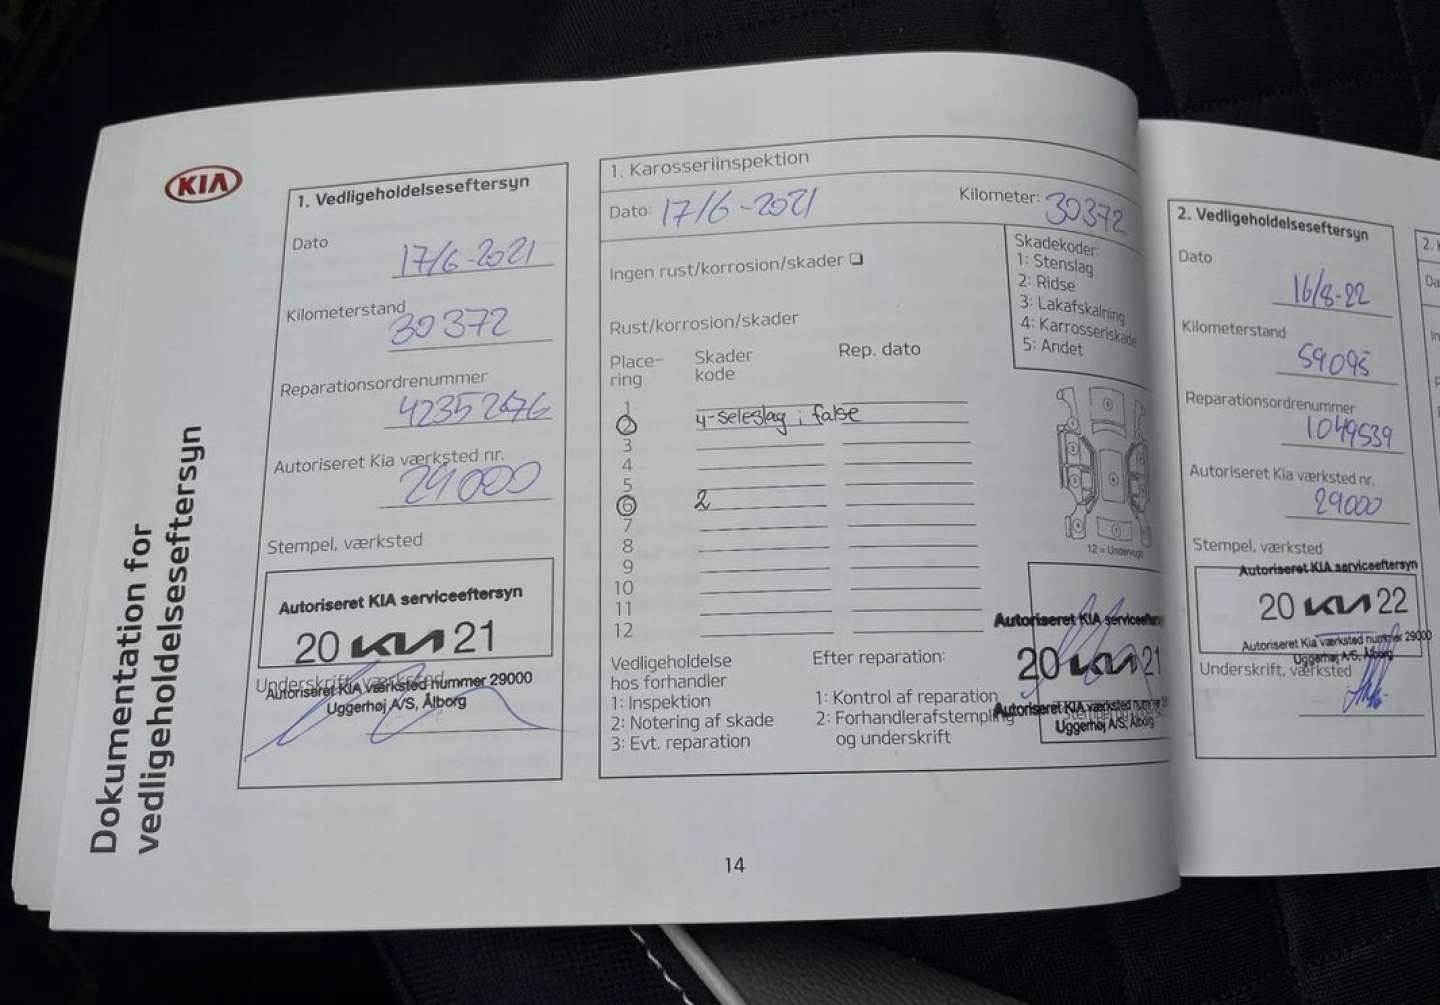 Dokumentation for
vedligeholdelseseftersyn
KIA
1. Vedligeholdelseseftersyn
Dato
17/6-2021
Kilometerstand
30372
Reparationsordrenummer
Autoriseret Kia værksted nr.
29000
Stempel, værksted
Autoriseret KIA serviceeftersyn
20 KIA 21
Underskrift, værksted
Autoriseret KIA værksted nummer 29000
Uggerhøj A/S, Ålborg
1. Karosseriinspektion
Dato: 17/6-2021
Kilometer: 30372
Ingen rust/korrosion/skader
Skadekoder:
1: Stenslag
2: Ridse
3: Lakafskalning
4: Karrosseriskade
5: Andet
Rust/korrosion/skader
Place-
ring
Skader
kode
Rep. dato
1
2 4-seleslag i false
3
4
5
6 2
7
8
9
10
11
12
12 = Undervogn
Vedligeholdelse
hos forhandler
1: Inspektion
2: Notering af skade
3: Evt. reparation
Efter reparation:
1: Kontrol af reparation
2: Forhandlerafstempling
og underskrift
Autoriseret KIA serviceeftersyn
20 KIA 21
Autoriseret KIA værksted nummer
Uggerhøj A/S, Ålborg
14
2. Vedligeholdelseseftersyn
Dato
16/8-22
Kilometerstand
59095
Reparationsordrenummer
1049539
Autoriseret Kia værksted nr.
29000
Stempel, værksted
Autoriseret KIA serviceeftersyn
20 KIA 22
Autoriseret KIA værksted nummer 29000
Uggerhøj A/S, Ålborg
Underskrift, værksted
2.
Da
In